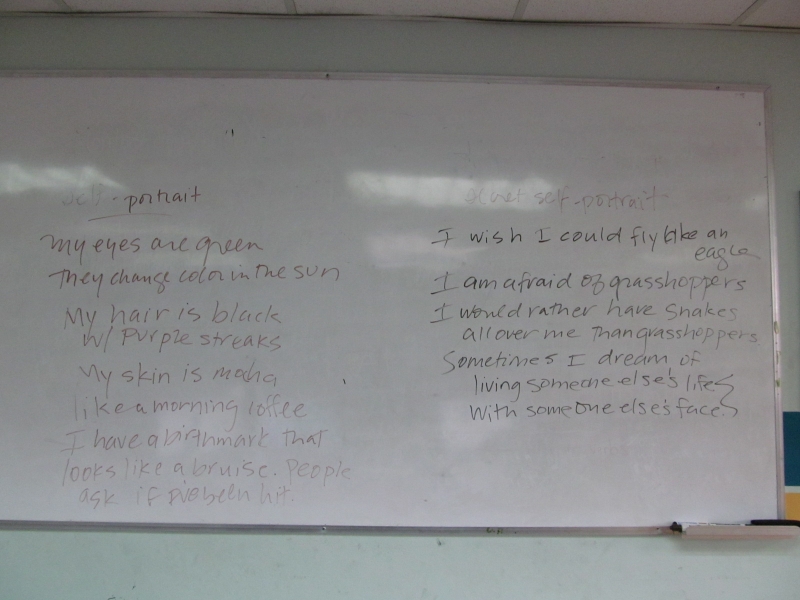 self-portrait
My eyes are green
They change color in the sun
My hair is black
w/ purple streaks
My skin is mocha
like a morning coffee
I have a birthmark that
looks like a bruise. People
ask if I've been hit.
self-portrait
I wish I could fly like an
eagle
I am afraid of grasshoppers
I would rather have snakes
all over me than grasshoppers.
Sometimes I dream of
living someone else's life
with someone else's face